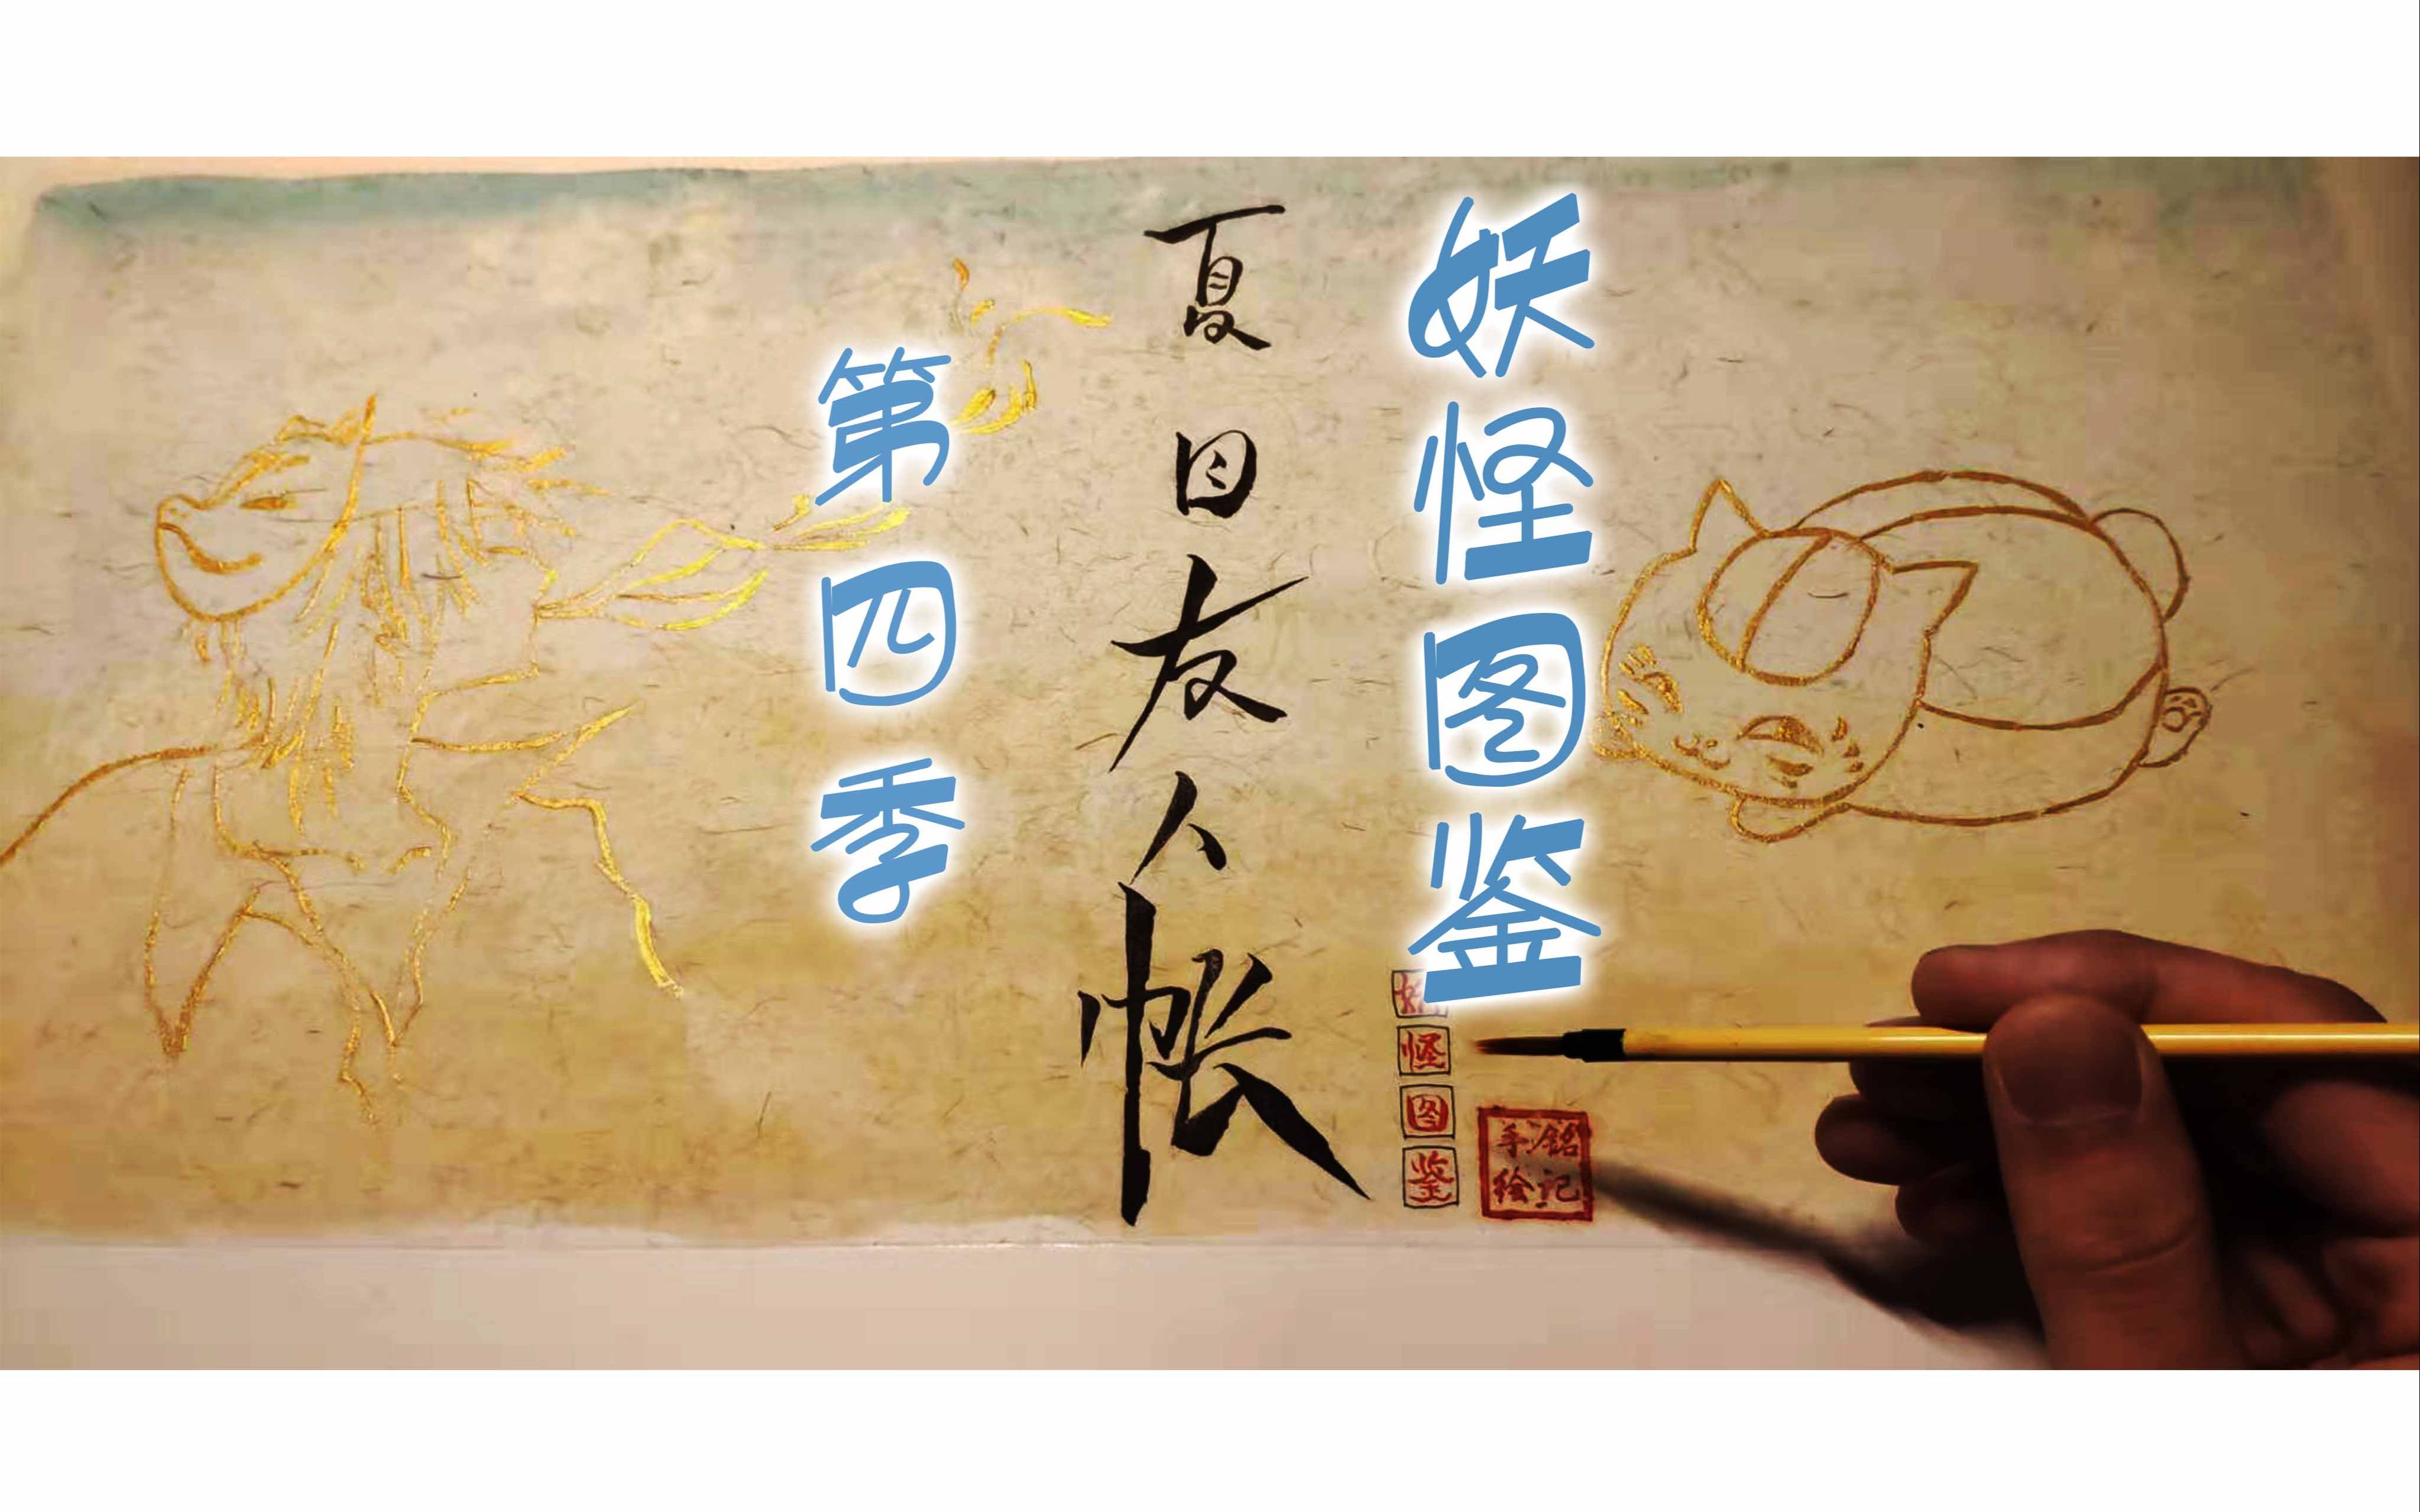 妖怪图鉴
夏目友人帐
第四季
妖怪图鉴
铭记
手绘